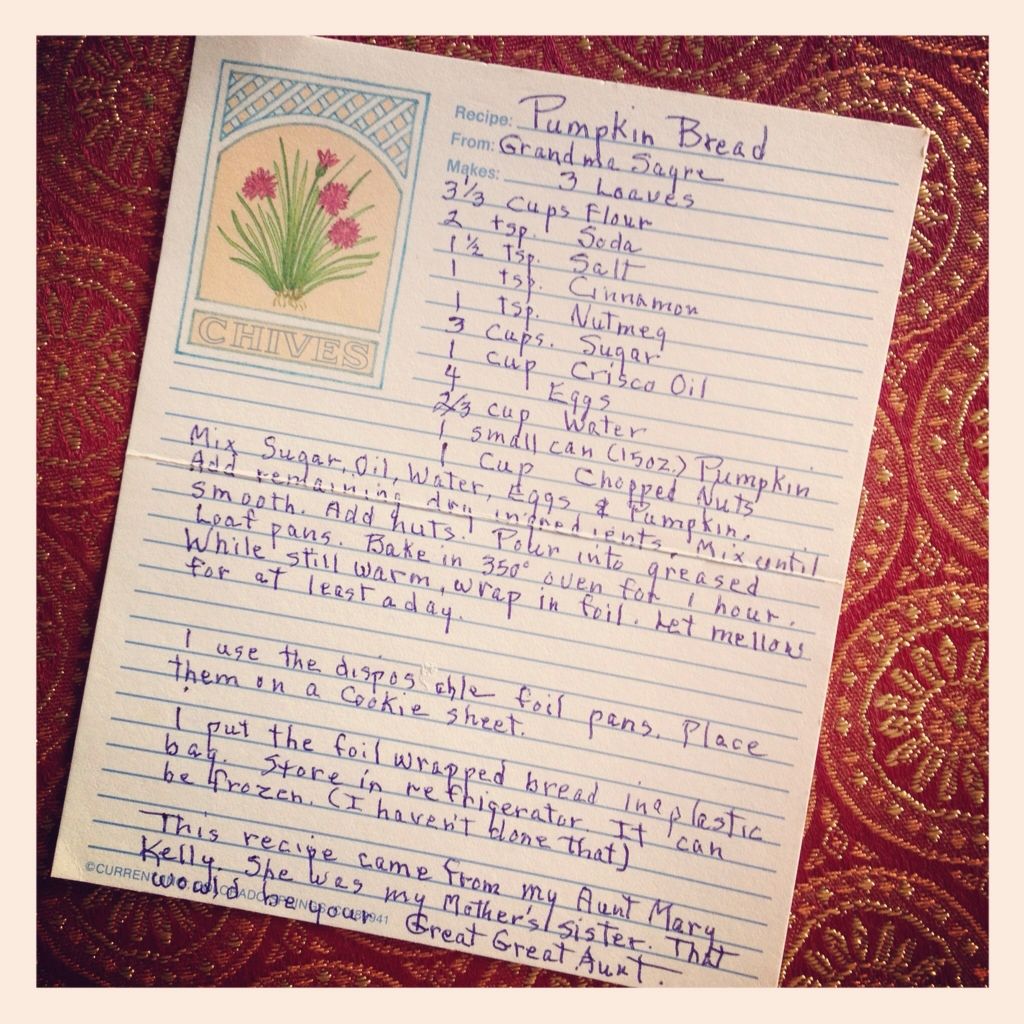 CHIVES
Recipe: Pumpkin Bread
From: Grandma Sayre
Makes: 3 Loaves
3 1/3 Cups Flour
2 tsp. Soda
1 1/2 Tsp. Salt
1 tsp. Cinnamon
1 tsp. Nutmeg
3 Cups. Sugar
1 cup Crisco Oil
4 Eggs
2/3 cup Water
1 small can (15oz.) Pumpkin
1 Cup Chopped Nuts
Mix Sugar, Oil, Water, Eggs & Pumpkin.
Add remaining dry ingredients. Mix until
smooth. Add nuts. Pour into greased
Loaf pans. Bake in 350° oven for 1 hour.
While still warm, wrap in foil. Let mellow
for at least a day.
I use the disposable foil pans. Place
them on a cookie sheet.
I put the foil wrapped bread in a plastic
bag. Store in refrigerator. It can
be frozen. (I haven't done that)
This recipe came from my Aunt Mary
Kelly. She was my Mother's sister. That
would be your Great Great Aunt.
©CURRENT